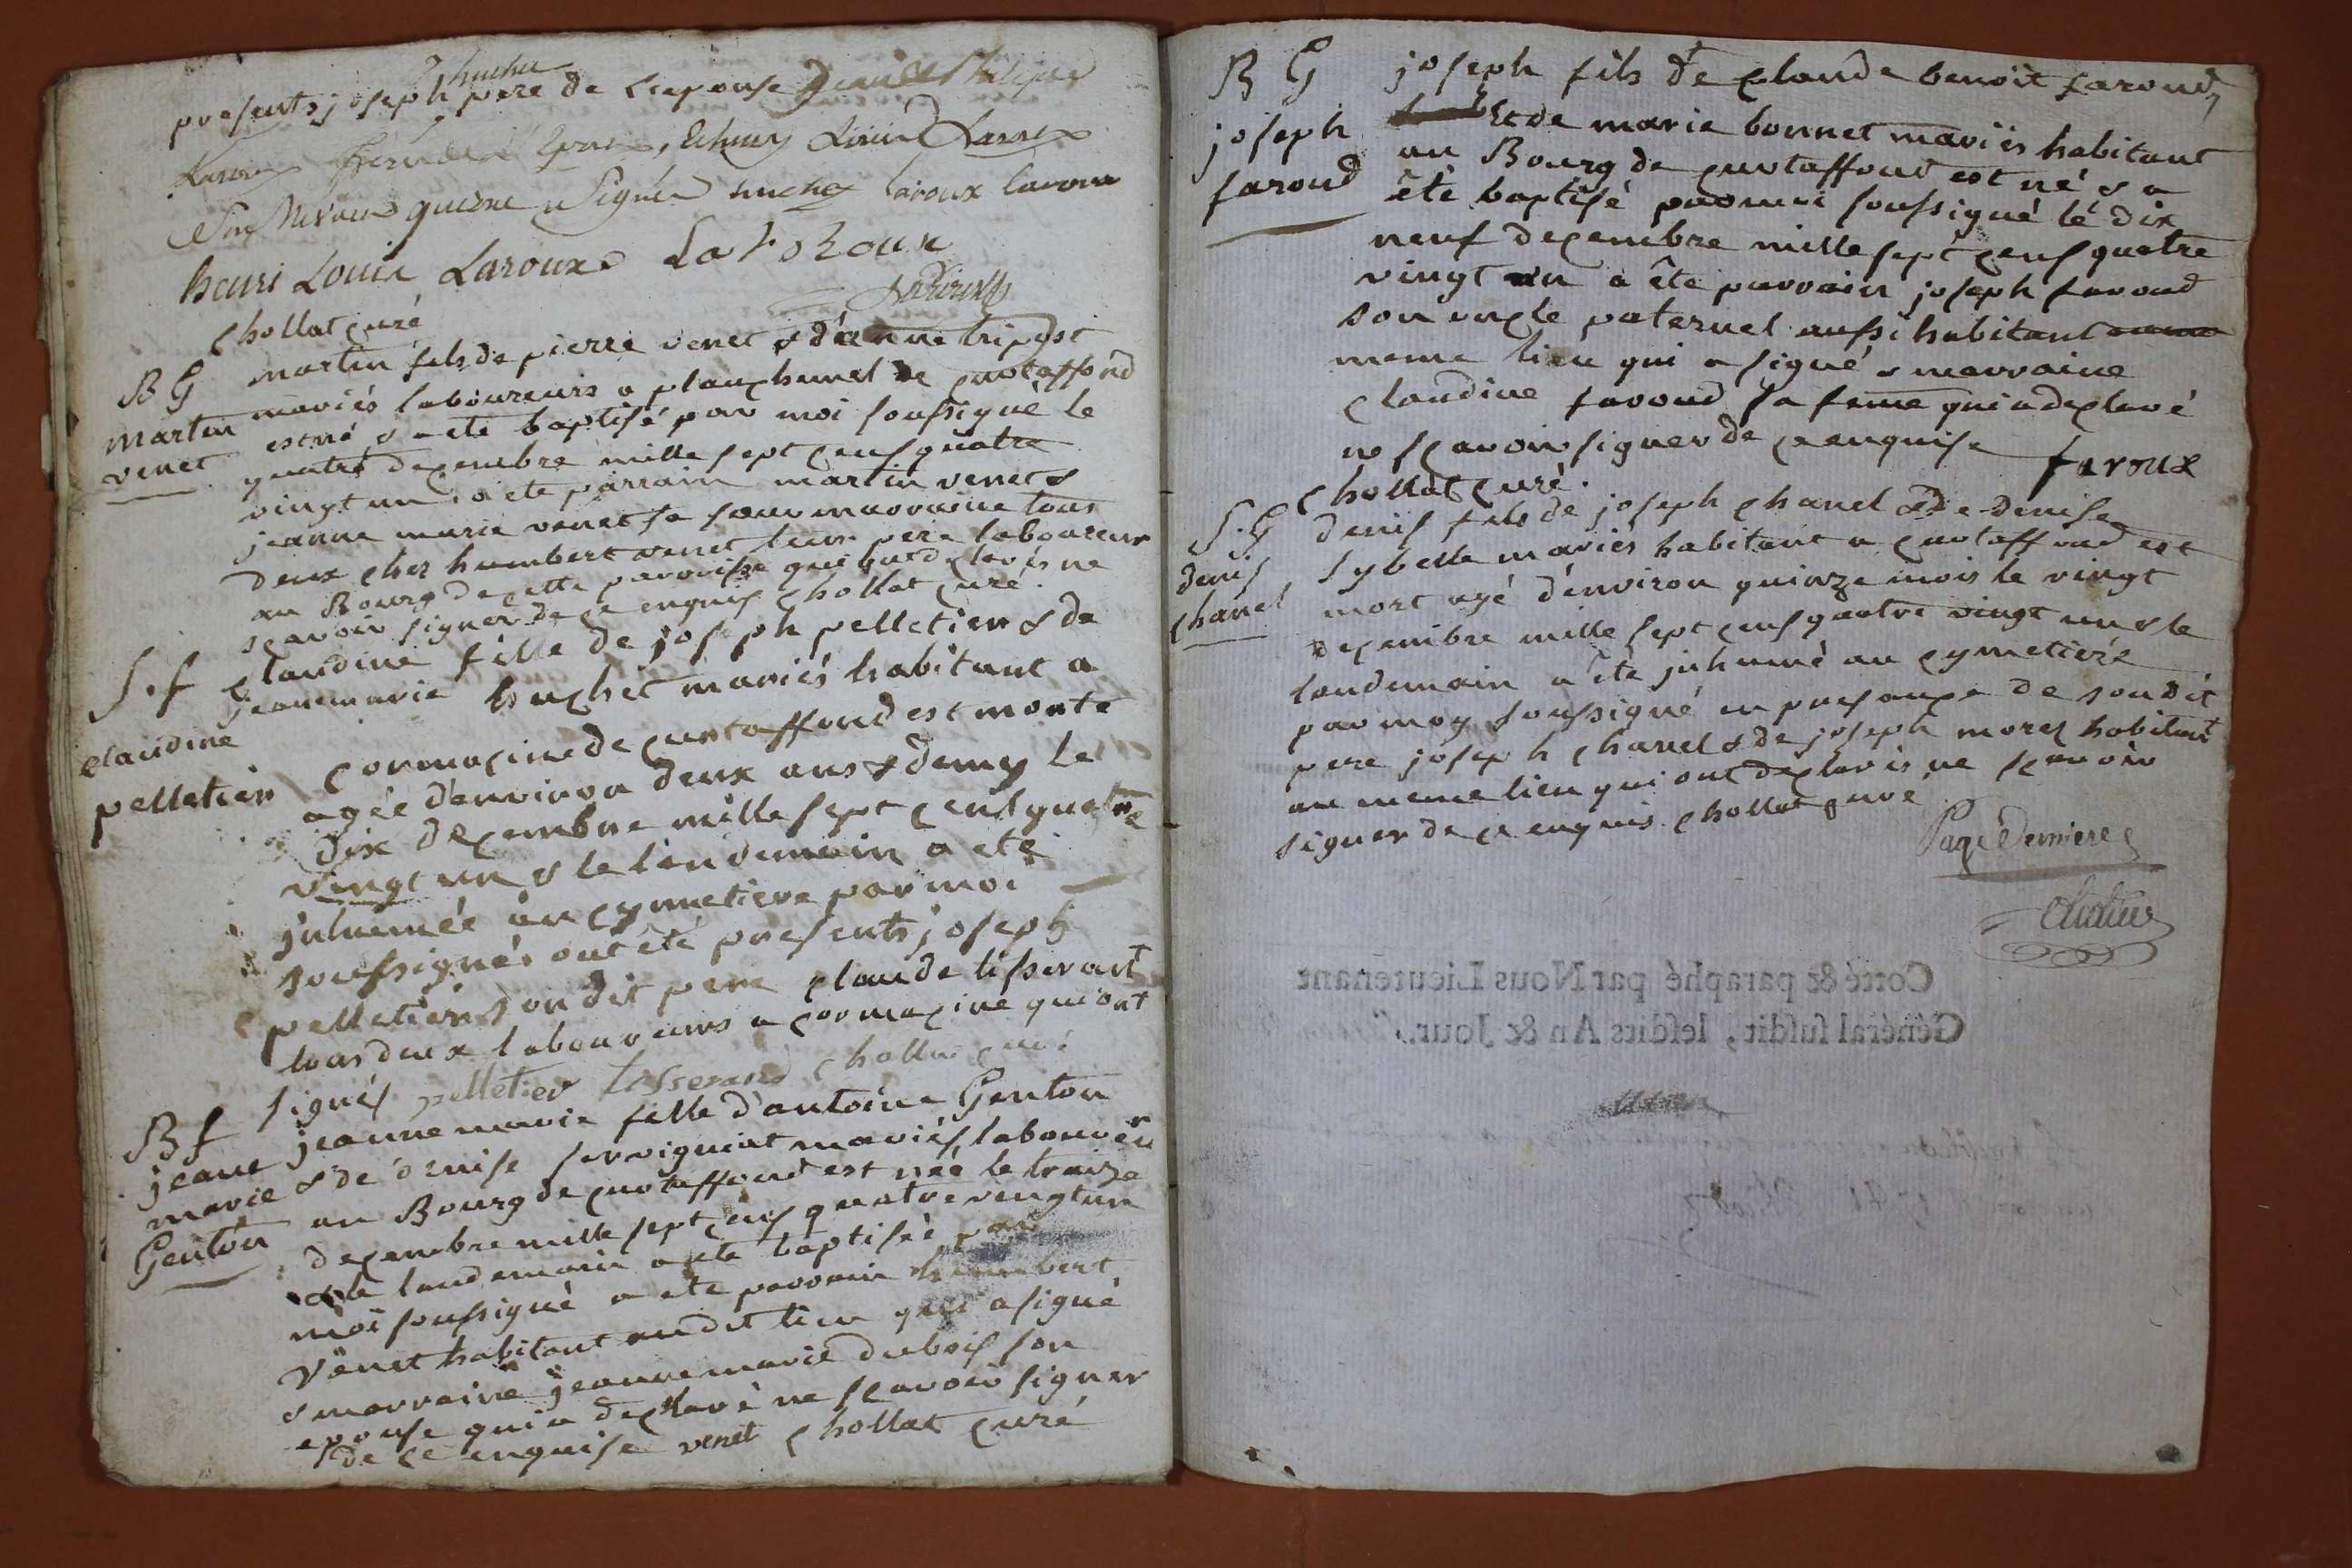 huchet
presents joseph pere de l'epouse
huchet laroux
henri Louis Laroux Laroux
Laroux
chollat curé
B G martin fils de pierre venet & d'anne tripost
mariés laboureurs a planchemel de curtaffond
martin est né & a ete baptisé par moi soussigné le
venet quatre decembre mille sept cens quatre
vingt un, a ete parrain martin venet &
jeanne marie venet sa soeur marraine tous
deux chez humbert venet leur pere laboureur
au Bourg de cette paroisse qui ont declarés ne
scavoir signer de ce enquis chollat curé
S. f claudine fille de joseph pelletier & de
jeanemarie huchet mariés habitant a
claudine cormacine de curtaffond est morte
pelletier agée denviron deux ans & demy le
dix decembre mille sept cens quatre
vingt un & le lendemain a eté
inhumée au cymetiere par moi
soussignés ont été presents joseph
pelletier son dit pere claude tisserant
tous deux laboureurs a cormacine qui ont
signés pelletier tisserand chollat curé
B f jeanne marie fille d'antoine Genton
jeane marie & de denise servigniat mariés laboureur
Genton au Bourg de curtaffond est née le treize
decembre mille sept cens quatre vingt un
& le landemain a ete baptisée par
moi soussigné a ete parrain humbert
Venet habitant audit lieu qui a signé
& marraine jeanne marie dubois son
epouse qui a declaré ne scavoir signer
de ce enquise venet chollat curé
B G joseph fils de claude benoit faroud,
joseph Et de marie bonnet mariés habitant
faroud au Bourg de curtaffond est né & a
été baptisé par moi soussigné lé dix
neuf decembre mille sept cens quatre
vingt un a ête parrain joseph faroud
son oncle paternel aussi habitant
meme lieu qui a signé & marraine
claudine faroud sa feme qui a declaré
ne scavoir signer de ce enquise faroux
chollat curé.
S. G denis fils de joseph chanel & de denise
denis sybelle mariés habitant a curtaffond est
chanel mort agé d'environ quinze mois le vingt
decembre mille sept cens quatre vingt un & le
landemain a ête inhumé au cymetiére
par moy soussigné en presance de son dit
pere joseph chanel & de joseph morel habitant
au meme lieu qui ont declarés ne scavoir
signer de ce enquis chollat curé
Page Derniere
Cotté & paraphé par Nous Lieutenant
Général susdit, lesdits An & Jour.